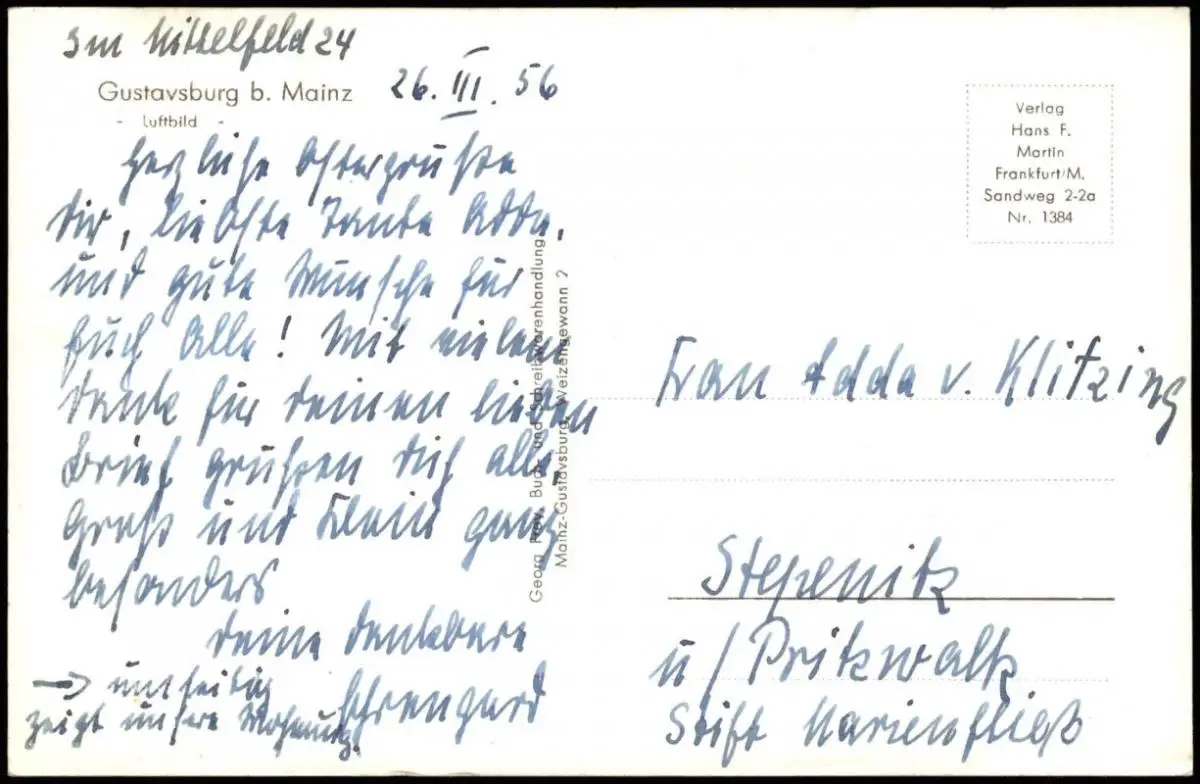 Im Mittelfeld 24
Gustavsburg b. Mainz
- Luftbild -
26. III. 56
Herzliche Ostergrüße
Dir, liebste Tante Adda,
und gute Wünsche für
Euch Alle! Mit vielem
Dank für Deinen lieben
Brief grüßen Dich alle,
Groß und Klein ganz
besonders
Deine dankbare
Ehrengard
→ umseitig
zeigt unsere Wohnung.
Georg Buch- und Schreibwarenhandlung
Mainz-Gustavsburg, Weizengewann 2
Verlag
Hans F.
Martin
Frankfurt/M.
Sandweg 2-2a
Nr. 1384
Frau Adda v. Klitzing
Stepenitz
ü/ Pritzwalk
Stift Marienfließ